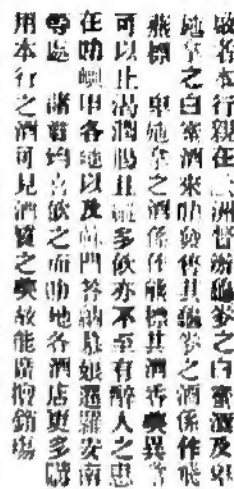 啟者本行親在□洲督辦□麥之白蜜酒及卑
地孖之白蜜酒來叻發售其□麥之酒係作飛
燕標 卑地孖之酒係作熊標其酒香奧異常
可以止渴潤腸且□多飲亦不至有醉人之患
在叻㘓甲各地以及□門答□□□暹羅安南
等處 諸君均喜飲之而叻地各酒店更多購
用本行之酒可見酒質之奧故能廣搜銷場